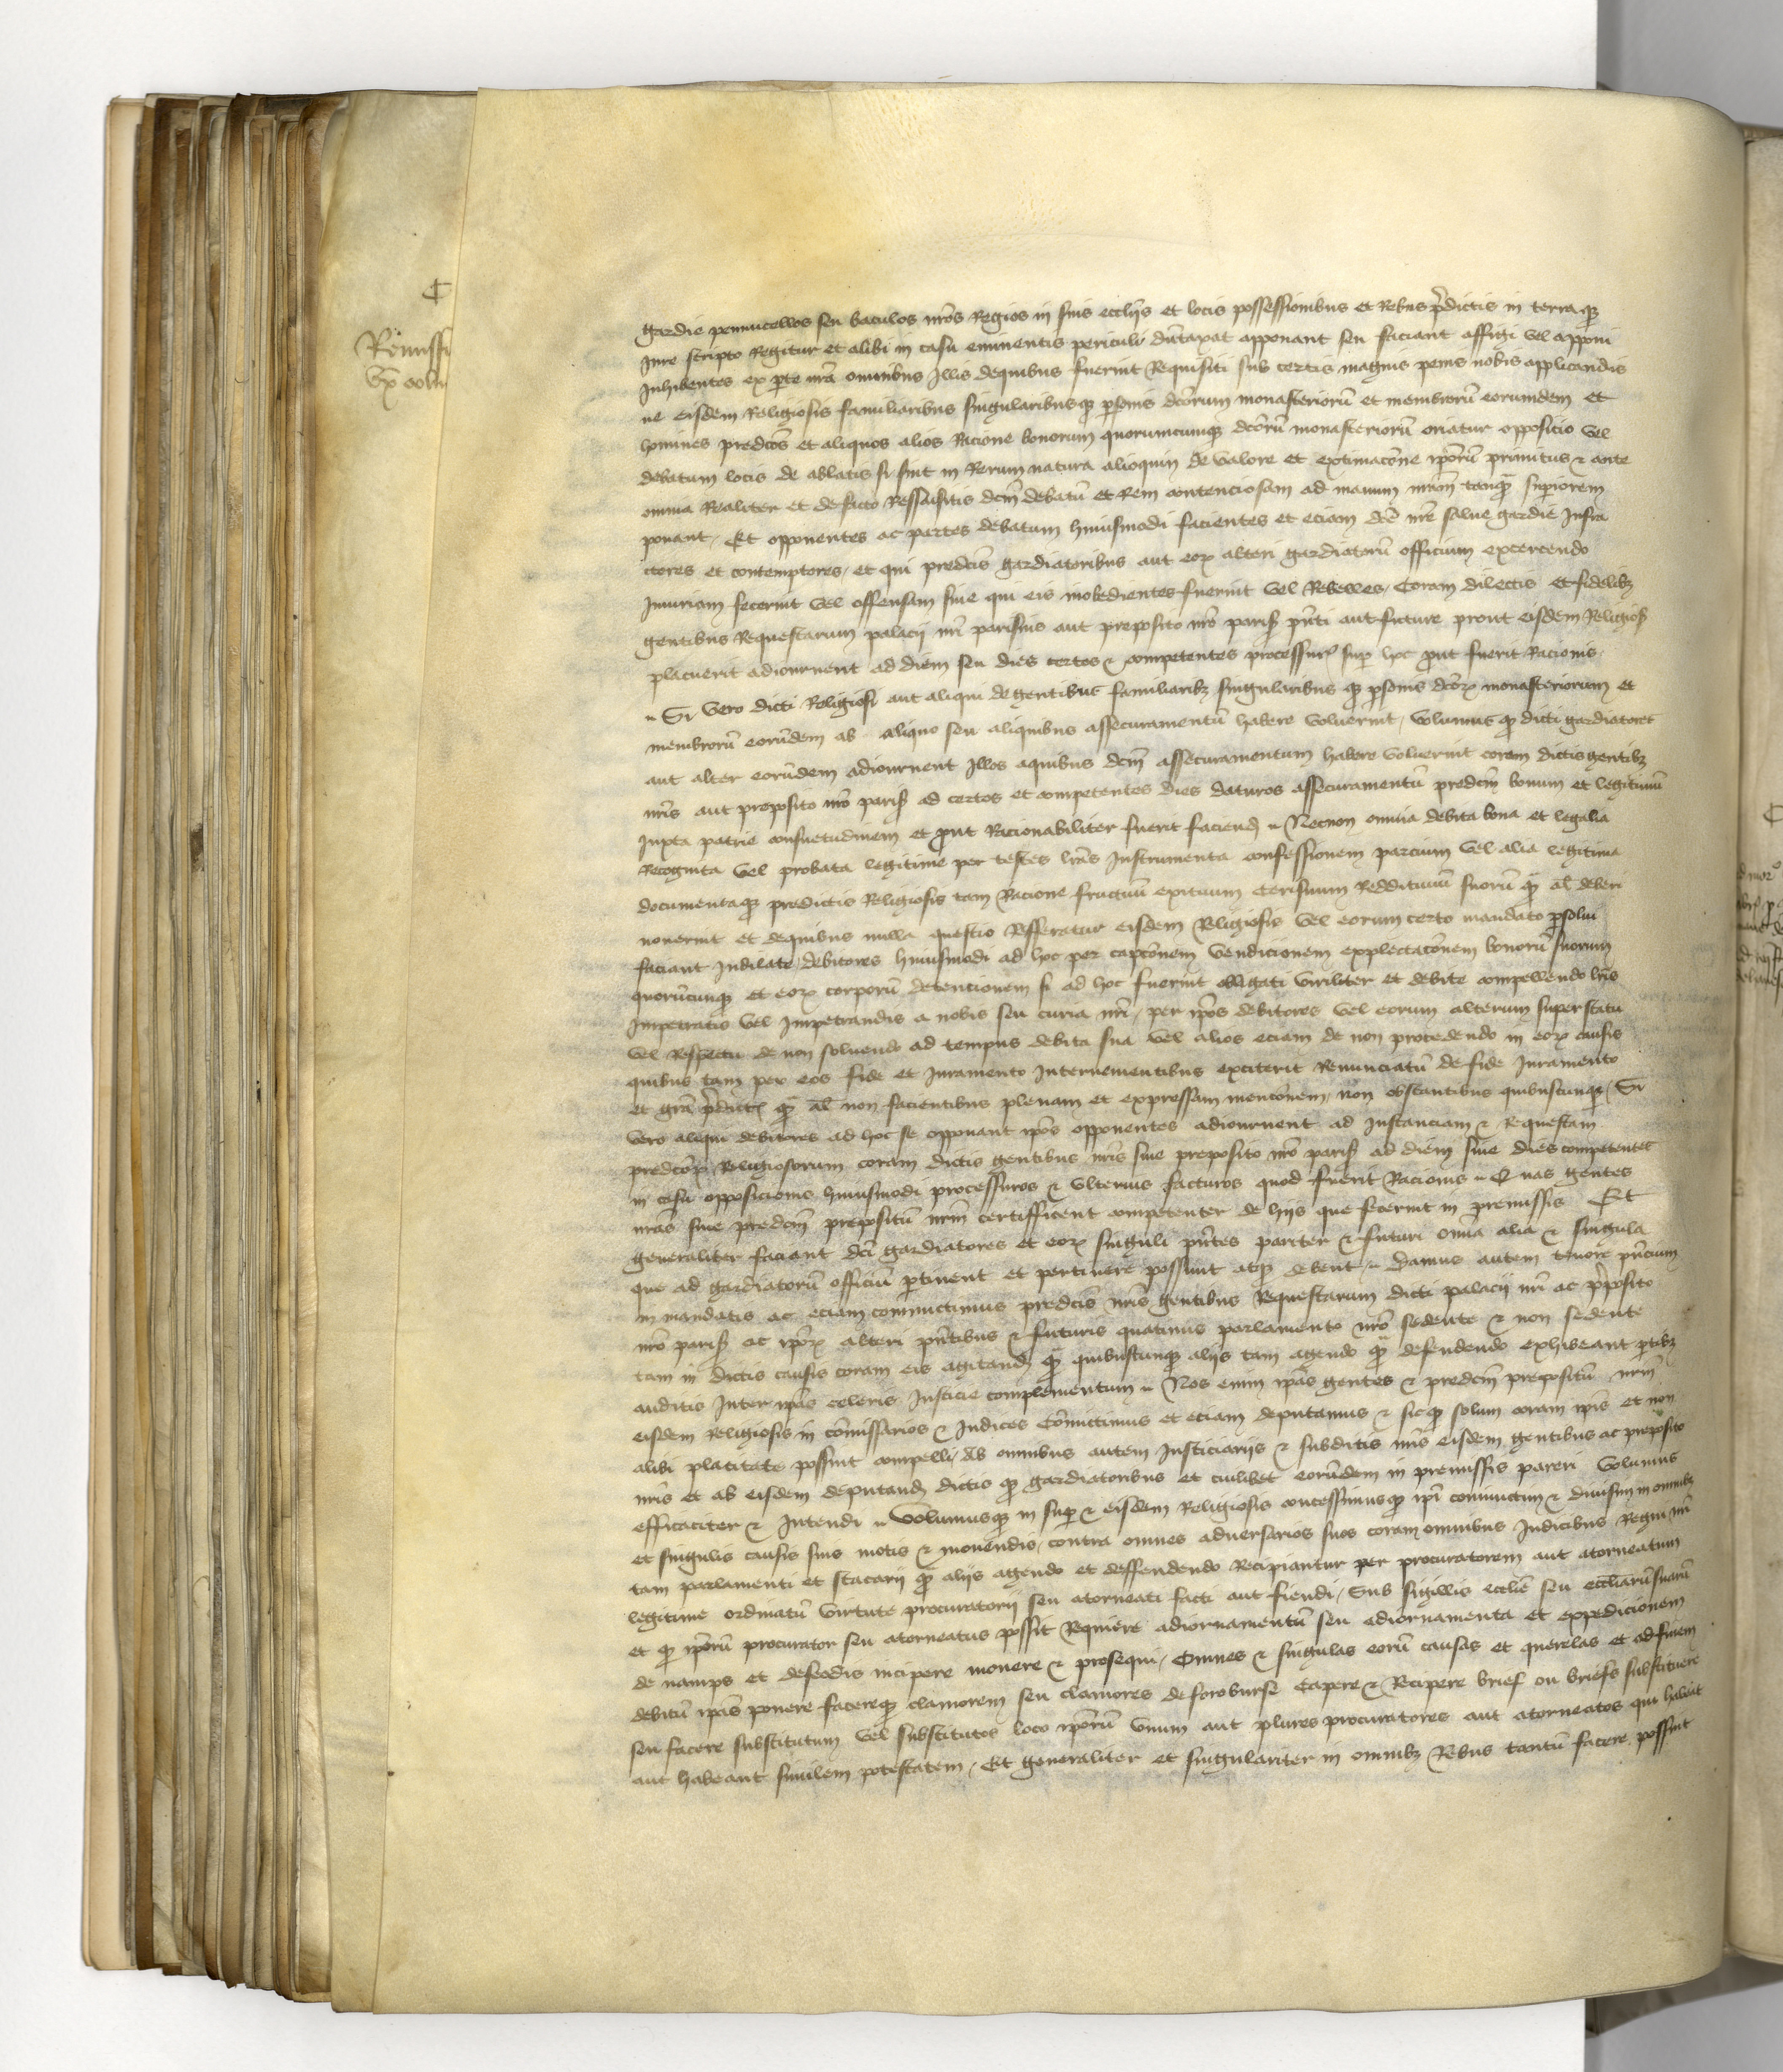 ₵
Remissi
gardie pennucellos seu baculos nr̃os Regios in suis eccliis et locis possessionibus et Rebus p̃dictis in terra q̃
Jure scripto Regitur et alibi in casu eminentis periculi dũtaxat apponant seu faciant affigi vel apponi
Inhibentes ex parte nr̃a omnibus Illis dequibus fuerint Requisiti sub certis magnis penis nobis applicandis
ne eisdem Religiosis familiaribus singularibusq̃ p̃sonis dc̃orum monasteriorũ et membrorũ eorumdem et
homines predc̃os et aliquos alios Racione bonorum quorumcumq̃ dc̃orũ monasteriorũ oriatur opposicio vel
debatum locis de ablatis si sint in Rerum natura alioquin de valore et extimacõne ip̃orũ primitus ⁊ ante
omnia Realiter et defacto Ressaisitis dcm̃ debatũ et Rem contenciosam ad manum nr̃am tanq̃ sup̃iorem
ponant / Et opponentes ac partes debatum huiusmodi facientes et eciam dc̃e nr̃e salue gardie Infra
ctores et contemptores / et qui predc̃is gardiatoribus aut eoꝝ alteri gardiatorũ officium excercendo
Iniuriam fecerint vel offensam siue qui eis inobedientes fuerint vel Rebelles / Coram dilectis et fidelibꝫ
gentibus Requestarum palacij nr̃i parisius aut preposito nr̃o paris̃ pñti aut future prout eisdem Religios̃
placuerit adiournent ad diem seu dies certos ⁊ competentes processur̃ sup̃ hoc put fuerit Racionis
~ Si vero dicti Religiosi aut aliqui de gentibus familiaribꝫ singularibus q̃ p̃sonis dc̃oꝝ monasteriorum et
membrorũ eorũdem ab aliquo seu aliquibus assecuramentũ habere voluerint / volumus q̃ dicti gardiatores
aut alter eorũdem adiournent Illos aquibus dcm̃ assecuramentum habere voluerint coram dictis gentibꝫ
nr̃is aut preposito nr̃o paris̃ ad certos et competentes dies daturos assecuramentũ predcm̃ bonum et legitimũ
Juxta patrie consuetudinem et put Racionabiliter fuerit faciend̃ ~ Necnon omnia debita bona et legalia
Recognita vel probata legitime per testes lr̃as Instrumenta confessionem parcium vel alia legitima
documentaq̃ predictis Religiosis tam Racione fructuũ exituum Censuum Reddituum suorũ q̃ al̃ deberi
nouerint et dequibus nulla questio Refferatur eisdem Religiosis vel eorum certo mandato p̃solui
faciant Indilate / debitores huiusmodi ad hoc per capcõnem vendicionem explectacõnem bonorũ suorum
quorũcunq̃ et eoꝝ corporũ detencionem si ad hoc fuerint obligati viriliter et debite compellendo lr̃is
Impetratis vel Impetrandis a nobis seu curia nr̃a / per ip̃os debitores vel eorum alterum super statu
vel Respectu de non soluendo ad tempus debita sua vel alios eciam de non procedendo in eoꝝ causis
quibus tam per eos fide et Juramento Interuenientibus exciterit Renunciatũ de fide Juramento
et gr̃a p̃dict̃ q̃ al̃ non facientibus plenam et expressam mencõnem / non obstantibus quibuscunq̃ / Si
vero aliqui debitores ad hoc se opponant ip̃os opponentes adiournent ad Instanciam ⁊ Requestam
predc̃oꝝ Religiosorum coram dictis gentibus nr̃is siue preposito nr̃o paris̃ ad diem siue dies competentes
in casu opposicionis huiusmodi processuros ⁊ vlterius facturos quod fuerit Racionis ~ Quas gentes
nr̃as siue predcm̃ prepositũ nr̃m certifficent competenter de hijs que fecerint in premissis Et
generaliter faciant dc̃i gardiatores et eoꝝ singuli pñtes pariter ⁊ futuri om̃ia alia ⁊ singula
que ad gardiatorũ officiũ p̃tinent et pertinere possunt atq̃ debent ~ Damus autem tenore pñcium
in mandatis ac eciam committimus predc̃is nr̃is gentibus Requestarum dicti palacij nr̃i ac p̃posito
nr̃o paris̃ ac ip̃oꝝ alteri pñtibus ⁊ futuris quatinus parlamento nr̃o sedente ⁊ non sedente
tam in dictis causis coram eis agitand̃ q̃ quibuscunq̃ alijs tam agendo q̃ defendendo exhibeant p̃tibꝫ
auditis Inter ip̃as celeris Justicie complementum ~ Nos enim ip̃as gentes ⁊ predcm̃ prepositũ nr̃m
eisdem Religiosis in cõmissarios ⁊ Judices Cõmittimus et eciam deputamus ⁊ sicq̃ solum coram ip̃is et non
alibi placitare possint compelli / Ab omnibus autem Justiciarijs ⁊ subditis nr̃is eisdem gentibus ac preposito
nr̃is et ab eisdem deputand̃ dictis q̃ gardiatoribus et cuilibet eorũdem in premissis pareri volumus
efficaciter ⁊ Intendi ~ Volumusq̃ in sup̃ ⁊ eisdem Religiosis concessimusq̃ ip̃i coniunctim ⁊ diuisim in omnibꝫ
et singulis causis suis motis ⁊ mouendis / contra omnes aduersarios suos coram omnibus Judicibus Regni nr̃i
tam parlamenti et stacarij q̃ alijs agendo et deffendendo Recipiantur per procuratorem aut atorneatum
legitime ordinatũ virtute procuratorij seu atorneati facti aut fiendi / Sub sigillis ecclie seu eccliarũ suarũ
et q̃ ip̃orũ procurator seu atorneatus possit Requirere adiornamentũ seu adiornamenta et expedicionem
de namps et defeodis incipere mouere ⁊ prosequi / Omnes ⁊ singulas eorũ causas et querelas et ad finem
debitũ ip̃as ponere facereq̃ clamorem seu clamores de foro burse Capere ⁊ Recipere brief ou briefs substituere
seu facere substitutum vel substitutos loco ip̃orũ vnum aut plures procuratores aut atorneatos qui habeãt
aut habeant similem potestatem / Et generaliter et singulariter in omnibꝫ Rebus tantũ facere possint